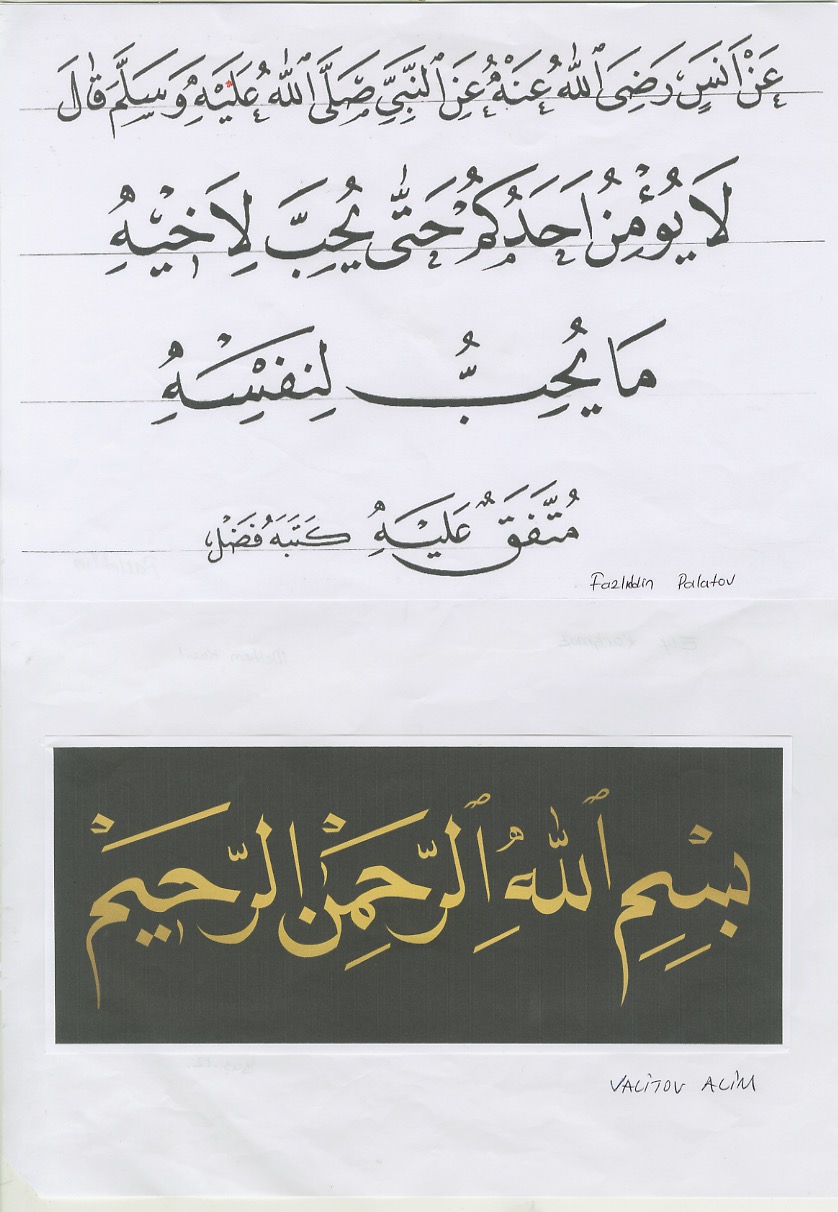 عَنْ اَنَسٍ رَضِىَ ٱللّٰهُ عَنْهُ عَنِ ٱلنَّبِىِّ صَلَّى ٱللّٰهُ عَلَيْهِ وَسَلَّمَ قَالَ
لَا يُؤْمِنُ اَحَدُكُمْ حَتّٰى يُحِبَّ لِاَخ۪يْهِ
مَا يُحِبُّ لِنَفْسِهِ
مُتَّفَقٌ عَلَيْهِ كَتَبَهُ فَضْل
Fazliddin Palatov
بِسْمِ ٱللّٰهِ ٱلرَّحْمٰنِ الرَّح۪يمْ
VALİTOV ALİM